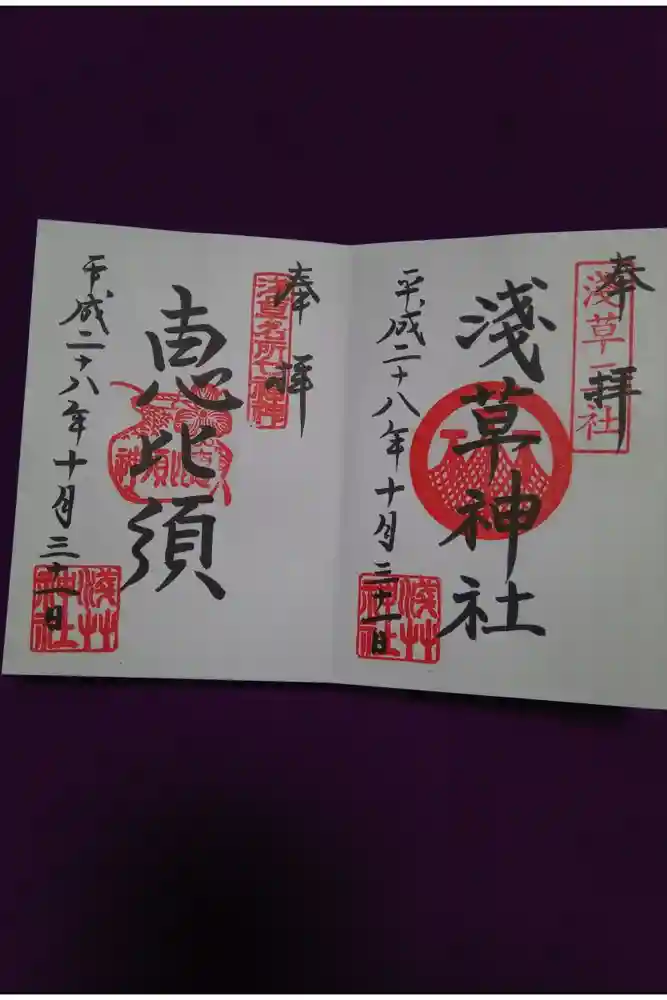 奉拝
淺草三社
淺草神社
平成二十八年十月三十一日
淺艸神社
奉拝
浅草名所七福神
恵比須
平成二十八年十月三十一日
淺艸神社